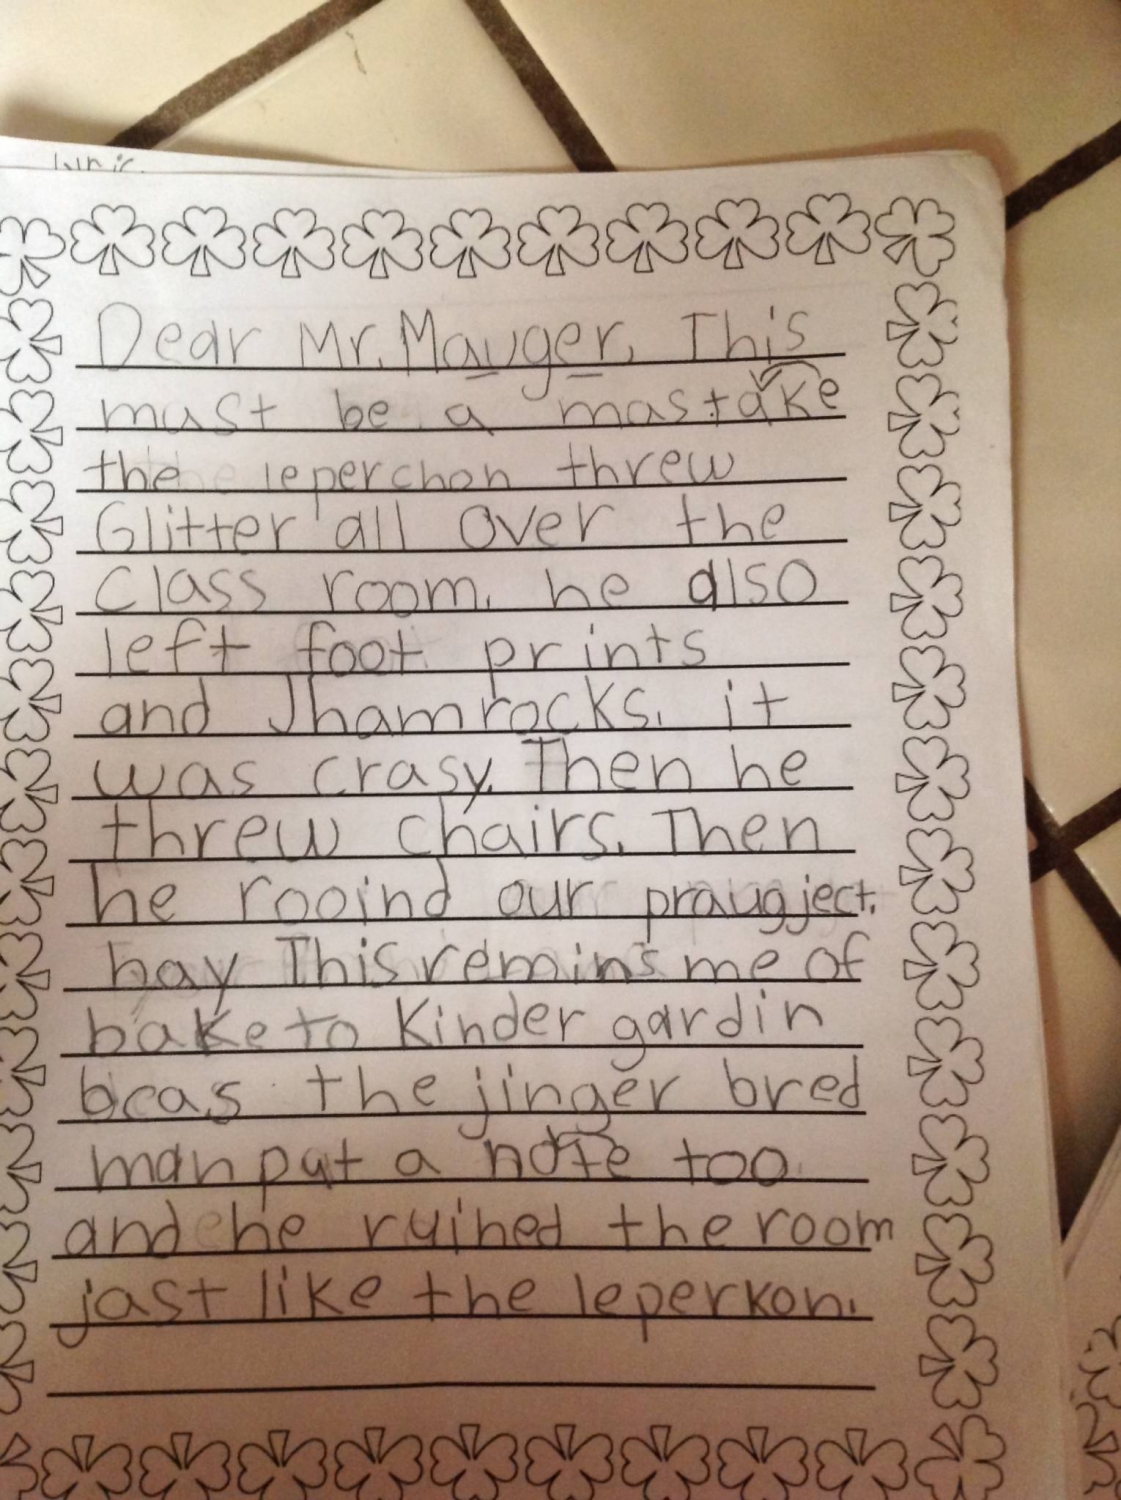 Dear Mr. Mauger, This
must be a mastake
the leperchon threw
Glitter all over the
Class room. he also
left foot prints
and Jhamrocks. it
was crasy. Then he
threw chairs. Then
he rooind our praugject.
hay This remains me of
bake to Kinder gardin
bcas the jinger bred
man put a note too.
and he ruined the room
jast like the leperkon.